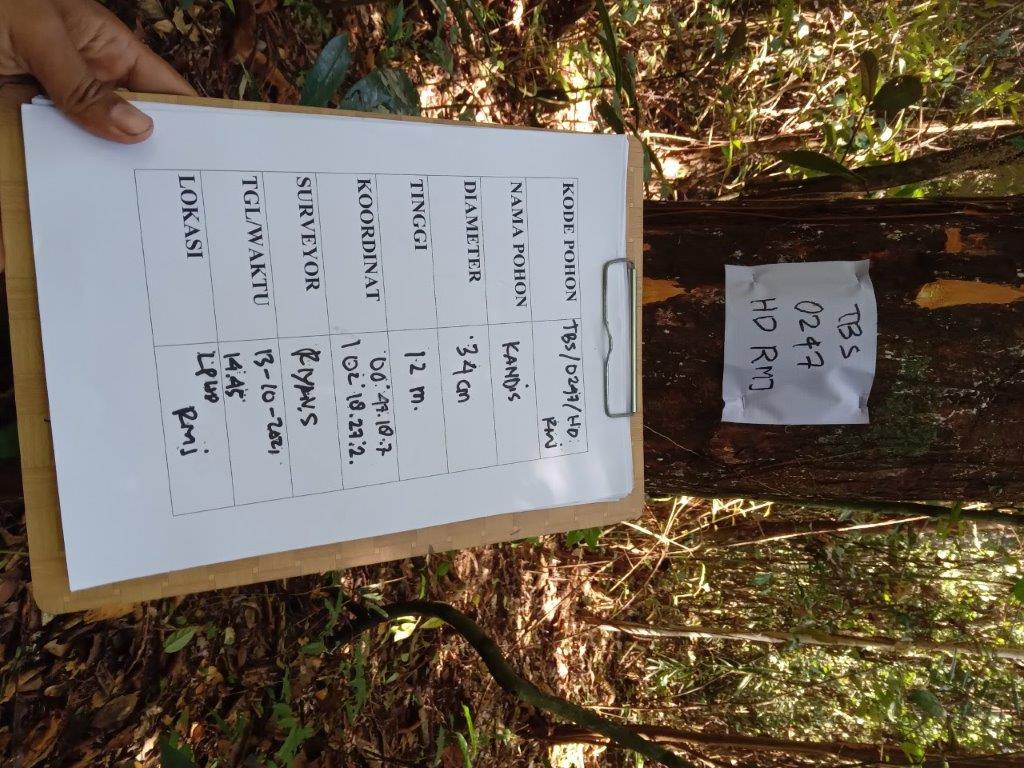 TBS
0247
HD RMJ
KODE POHON TBS/0247/HD
RMJ
NAMA POHON KANDIS
DIAMETER 34 cm
TINGGI 12 m.
KOORDINAT 00.47.18.7
102.18.27.2.
SURVEYOR RIYAN.S
TGL/WAKTU 13-10-2021
14.45
LOKASI LPHD
RMJ